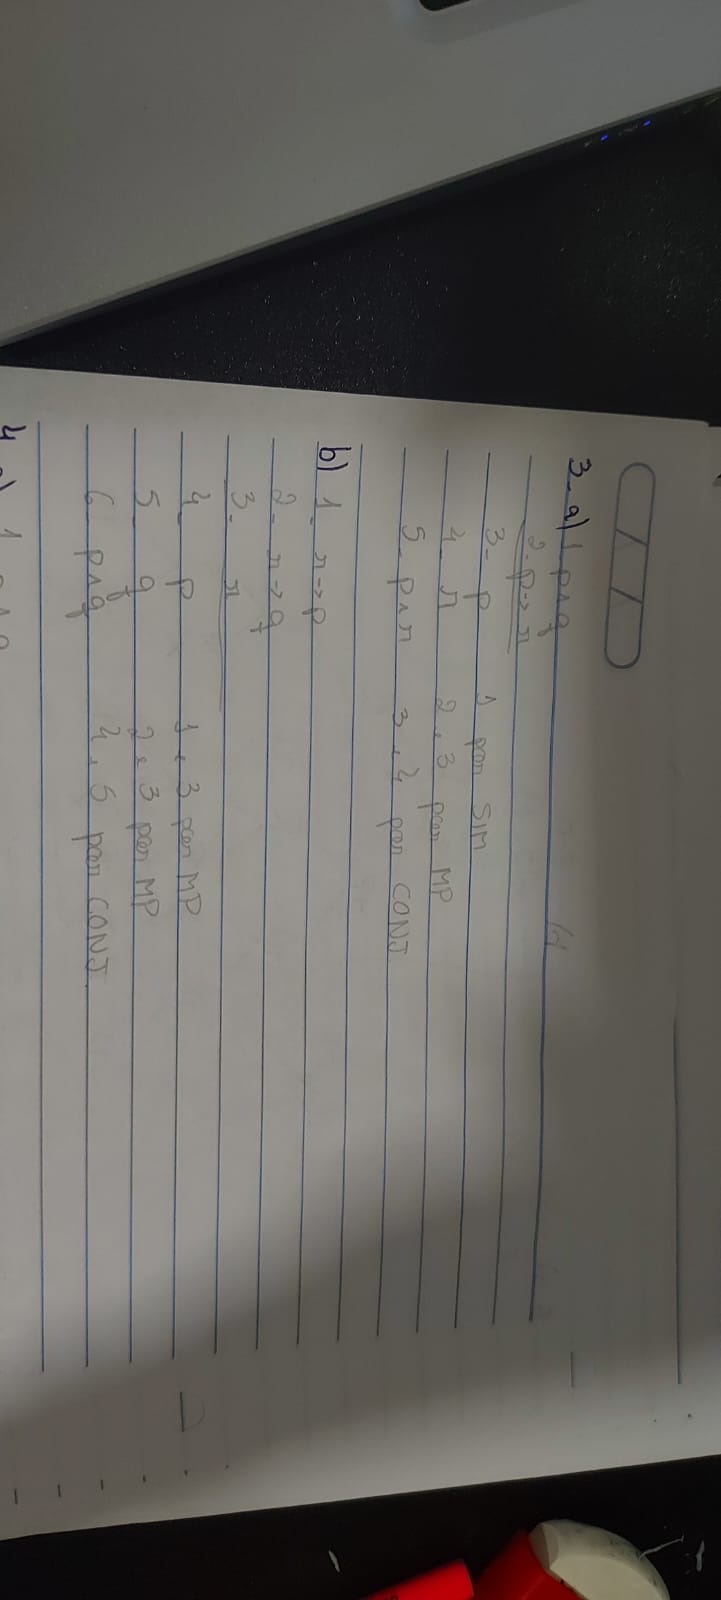 3-a) 1 p∧q
2- p→r
3- p 1 por SIM
4- r 2 e 3 por MP
5- p∧r 3 e 4 por CONJ
b) 1- r→p
2- r→q
3- r
4- p 1 e 3 por MP
5- q 2 e 3 por MP
6- p∧q 4, 5 por CONJ